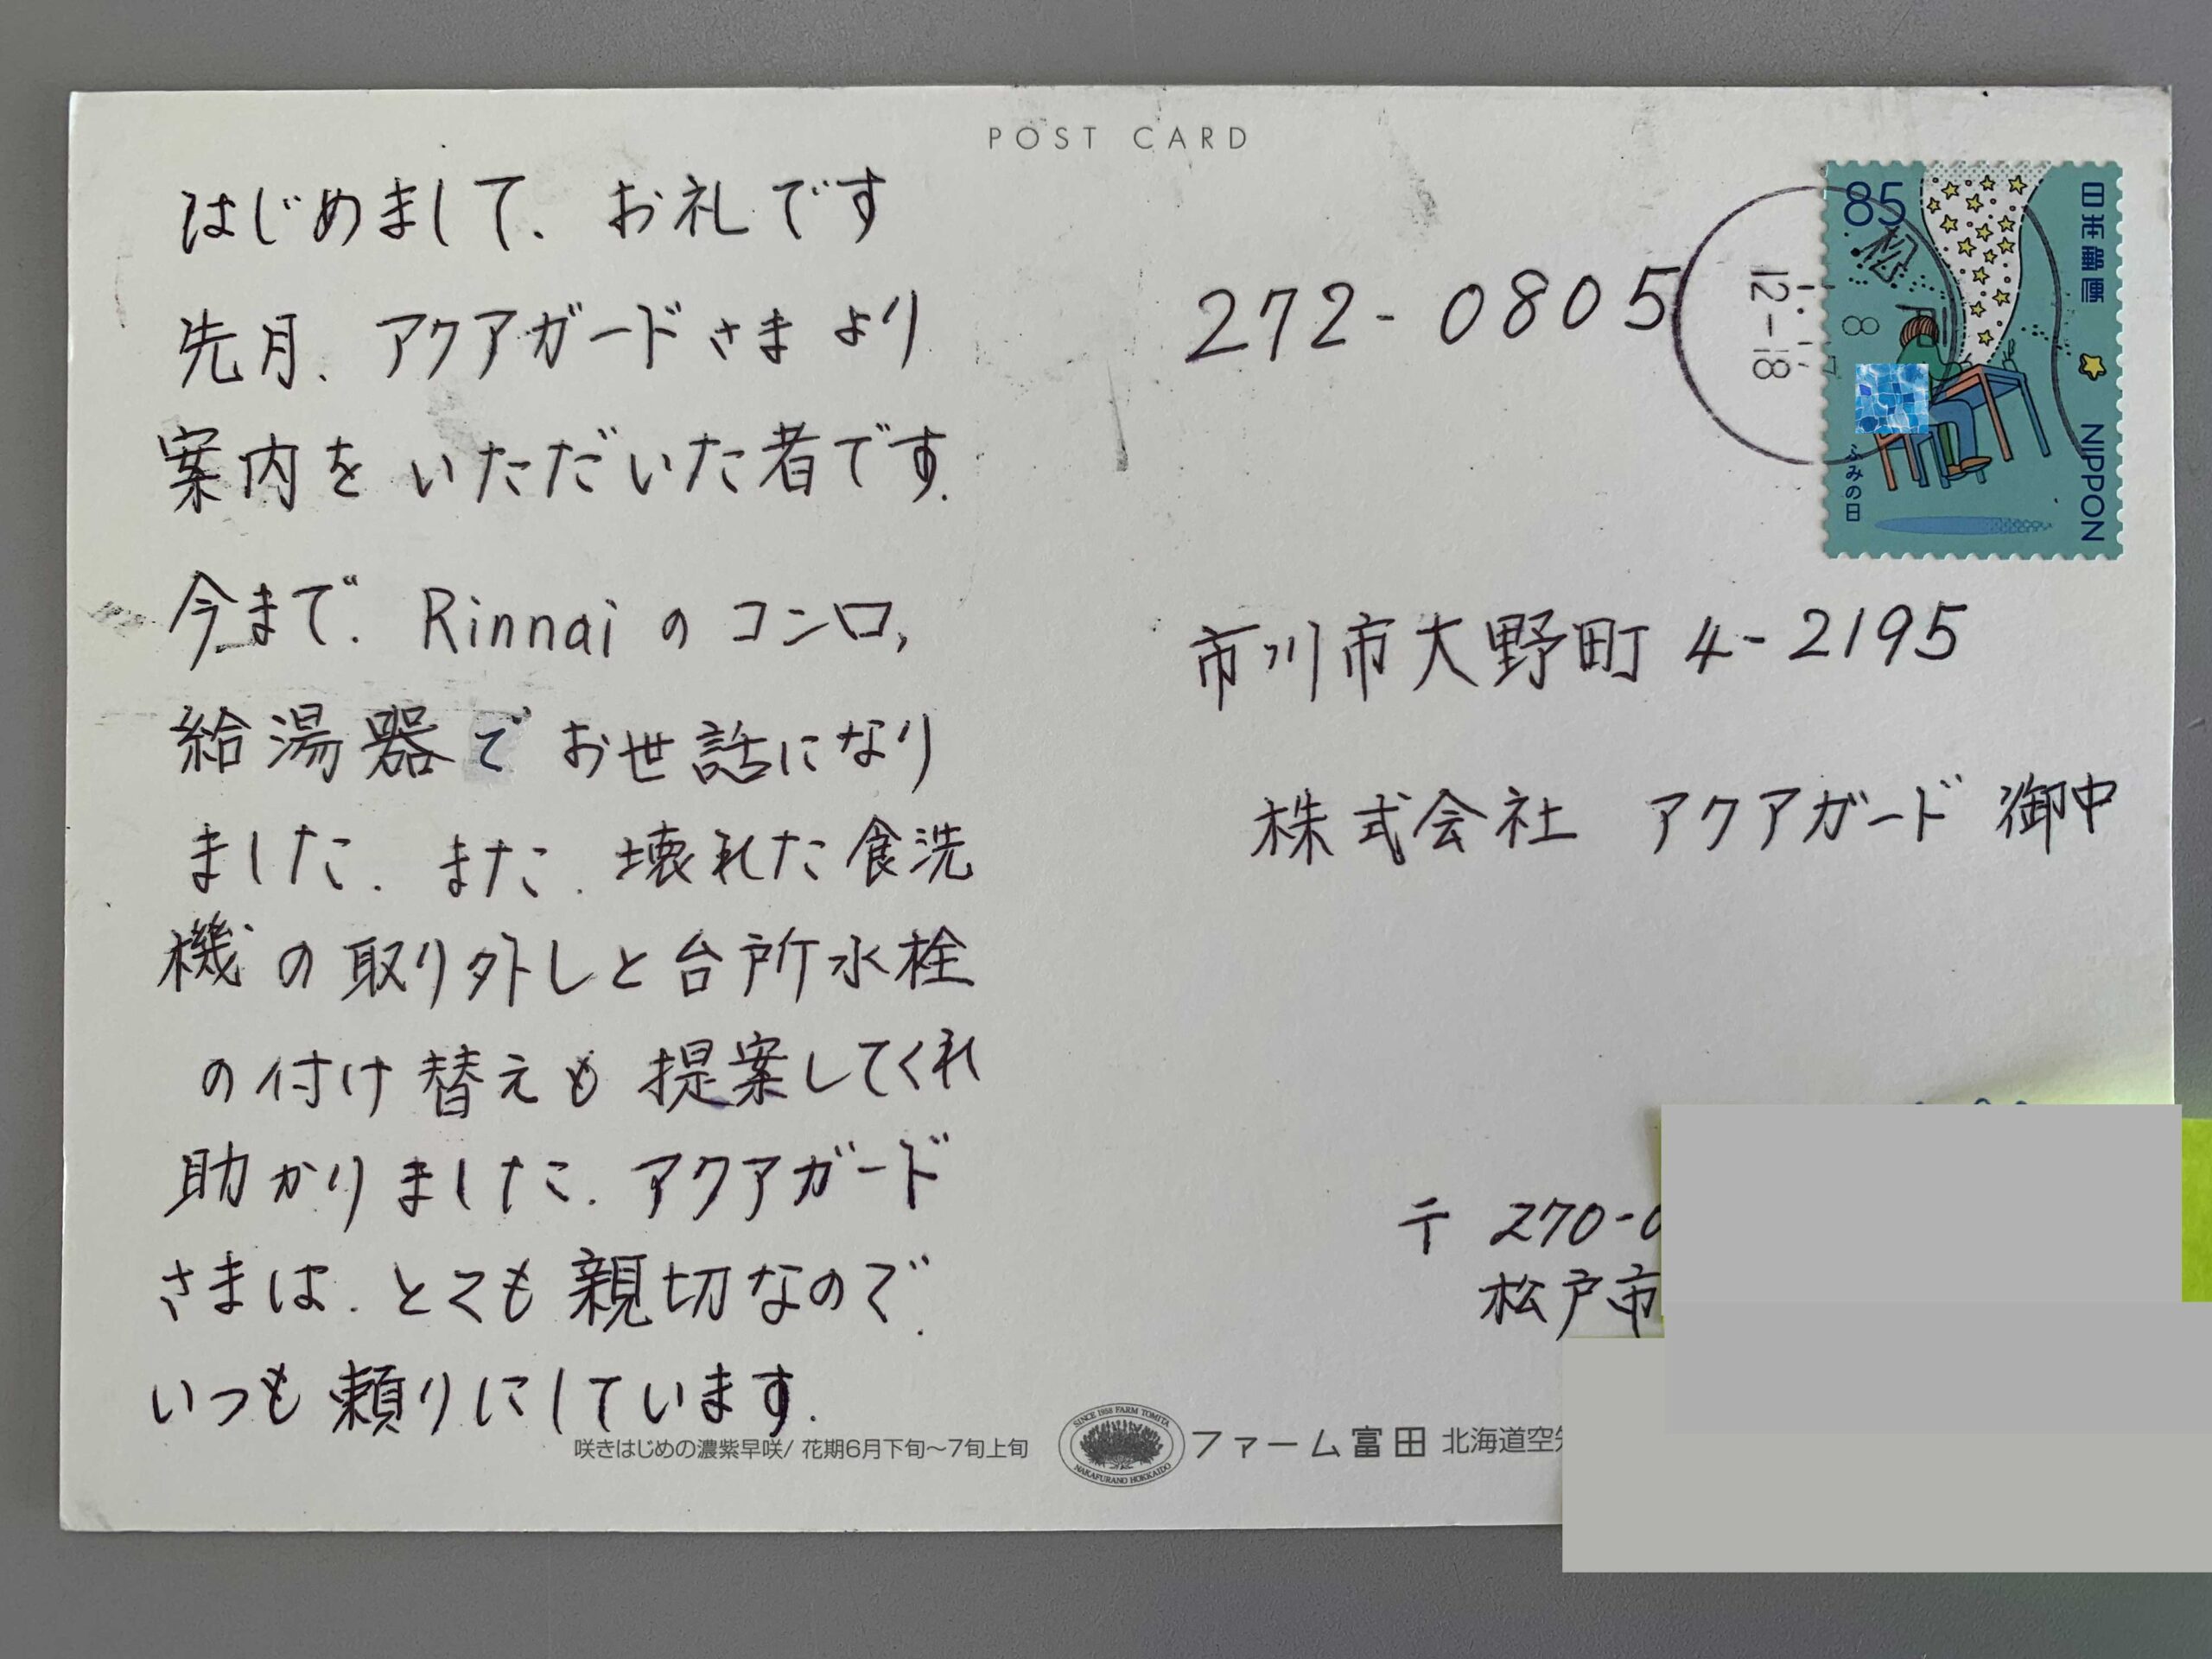 POST CARD
はじめまして、お礼です
先月、アクアガードさまより
案内をいただいた者です.
今まで、Rinnaiのコンロ,
給湯器でお世話になり
ました. また、壊れた食洗
機の取り外しと台所水栓
の付け替えも提案してくれ
助かりました. アクアガード
さまは、とても親切なので、
いつも頼りにしています.
272-0805
市川市大野町4-2195
株式会社 アクアガード 御中
〒 270-0
松戸市
85
日本郵便
NIPPON
ふみの日
松戸
8
12-18
咲きはじめの濃紫早咲/ 花期6月下旬～7旬上旬
SINCE 1958 FARM TOMITA
NAKAFURANO HOKKAIDO
ファーム富田 北海道空